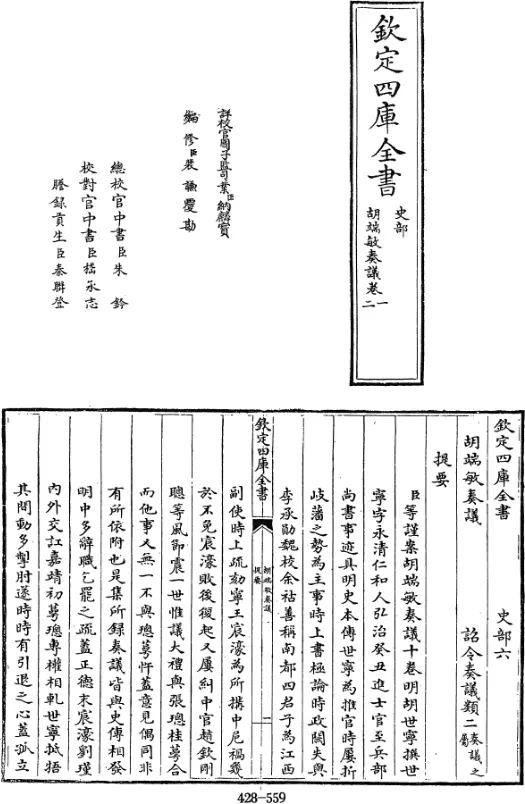 欽定四庫全書
史部
胡端敏奏議卷一二
詳校官國子監司業臣納麟寶
編修臣裴謙覆勘
總校官中書臣朱鈐
校對官中書臣嵇永志
謄録貢生臣秦聨登
欽定四庫全書 史部六
胡端敏奏議 詔令奏議類二奏議之屬
提要
臣等謹案胡端敏奏議十卷明胡世寧撰世
寧字永清仁和人弘治癸丑進士官至兵部
尚書事迹具明史本傳世寧為推官時屢折
岐藩之勢為主事時上書極論時政闕失與
李承勛魏校余祜善稱南都四君子為江西
欽定四庫全書
胡端敏奏議
提要
一
副使時上疏劾寧王宸濠為所搆中危禍幾
於不免宸濠敗後復起又屢糾中官趙欽剛
聰等風節震一世惟議大禮與張璁桂萼合
而他事又無一不與璁萼忤蓋意見偶同非
有所依附也是集所録奏議皆與史傳相發
明中多辭職乞罷之疏蓋正德末宸濠劉瑾
内外交訌嘉靖初萼璁專權相軋世寧抵牾
其間動多掣肘遂時時有引退之心蓋孤立
428-559